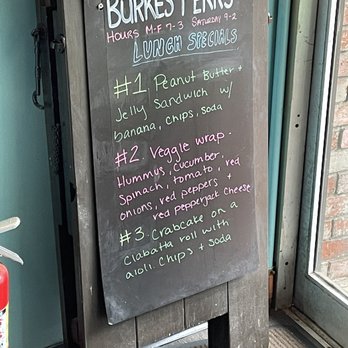 BURKES PERKS
HOURS M-F 7-3 SATURDAY 9-2
LUNCH SPECIALS
#1 Peanut Butter +
Jelly Sandwich w/
banana, chips, soda
#2 Veggie wrap -
Hummus, cucumber,
Spinach, tomato, red
onions, red peppers +
red pepperjack cheese
#3 - Crabcake on a
Ciabatta roll with
aioli. Chips + Soda